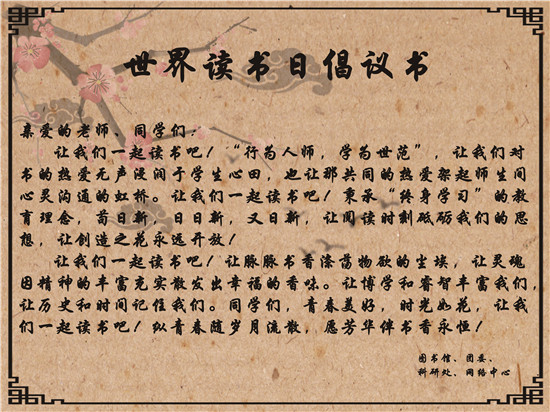 世界读书日倡议书
亲爱的老师、同学们：
让我们一起读书吧！“行为人师，学为世范”，让我们对
书的热爱无声浸润于学生心田，也让那共同的热爱架起师生间
心灵沟通的虹桥。让我们一起读书吧！秉承“终身学习”的教
育理念，苟日新，日日新，又日新，让阅读时刻砥砺我们的思
想，让创造之花永远开放！
让我们一起读书吧！让脉脉书香涤荡物欲的尘埃，让灵魂
因精神的丰富充实散发出幸福的香味。让博学和睿智丰富我们，
让历史和时间记住我们。同学们，青春美好，时光如花，让我
们一起读书吧！纵青春随岁月流散，愿芳华伴书香永恒！
图书馆、团委、
科研处、网络中心